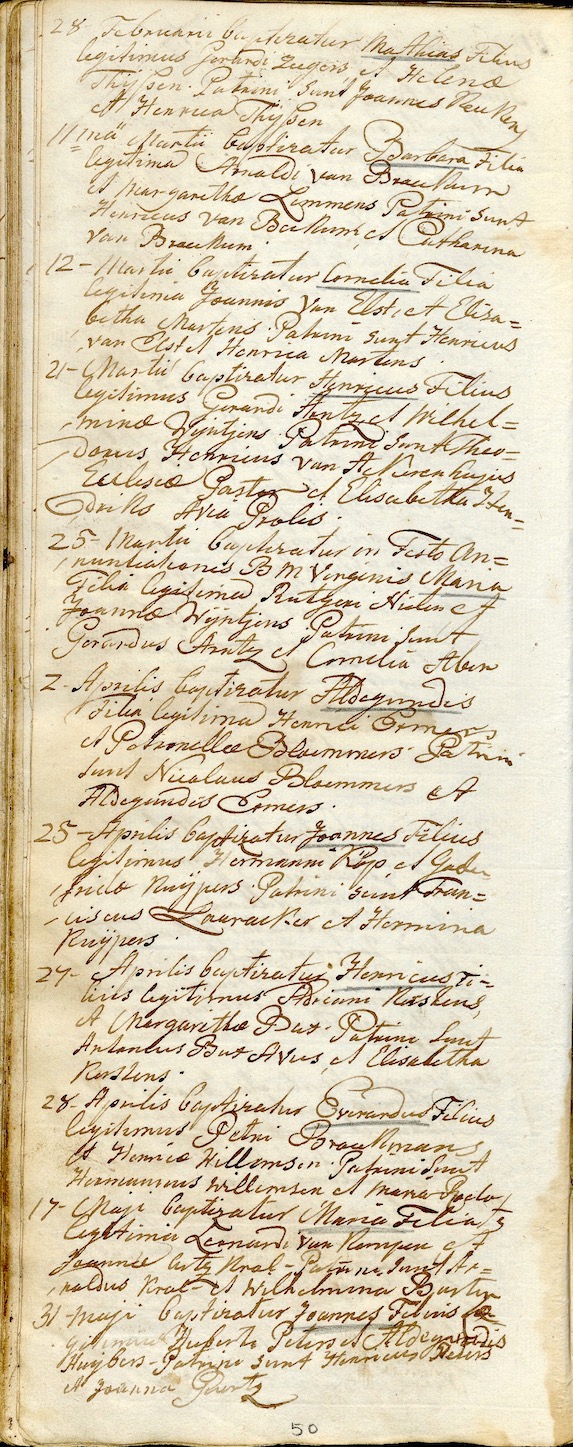 28 - Februarii baptizatur Mathias Filius
legitimus Gerardi Zegers et Helenæ
Thijssen. Patrini sunt Joannes
et Henrica Thijssen
11 - Martii baptizatur Barbara Filia
legitima Arnoldi van Braeckum
et Margarethæ Lommens Patrini sunt
Henricus van Beekum, et Catharina
van Braeckum.
12 - Martii baptizatur Cornelia Filia
legitima Joannis van Elst, et Eliza=
betha Martens Patrini sunt Henricus
van Elst et Henrica Martens
21 - Martii baptizatur Henricus Filius
legitimus Gerardi Arntz et Wilhel=
minæ Wijntjens Patrini sunt Theo=
dorus Henricus van hujus
Ecclesiæ Pastor et Elisabetha Hen=
driks Avia Prolis.
25 - Martii baptizatur in Festo An=
nuntiationis B M Virginis Maria
Filia legitima Rutgeri et
Joannæ Wijntjens Patrini sunt
Gerardus Arntz et Cornelia Aben
2 - Aprilis baptizatur Aldegundis
Filia legitima Henrici Ermers
et Petronellæ Bloemmers Patrini
sunt Nicolaus Bloemmers et
Aldegundis Ermers.
25 - Aprilis baptizatur Joannes Filius
legitimus Hermanni Kop et Gode
fridæ Kuijpers Patrini sunt Fran=
ciscus et Hermina
Kuijpers.
27 - Aprilis baptizatur Henricus Fi=
lius legitimus Adriani Kersten,
et Margarithæ But Patrini sunt
Antonius But Avus, et Elisabetha
Kerstens.
28 - Aprilis baptizatur Everardus Filius
legitimus Petri Broekmans
et Henricæ Willemsen Patrini sunt
Hermannus Willemsen et Maria
17 - Maji baptizatur Maria Filia
legitima Leonardi van Kempen et
Joannæ Kral - Patrini sunt Ar=
noldus Kral - et Wilhelmina
31 - Maji baptizatur Joannes Filius le
gitimus Huberti Peters et Aldegundis
Huybers - Patrini sunt Henricus Peters
et Joanna Geurtz
50